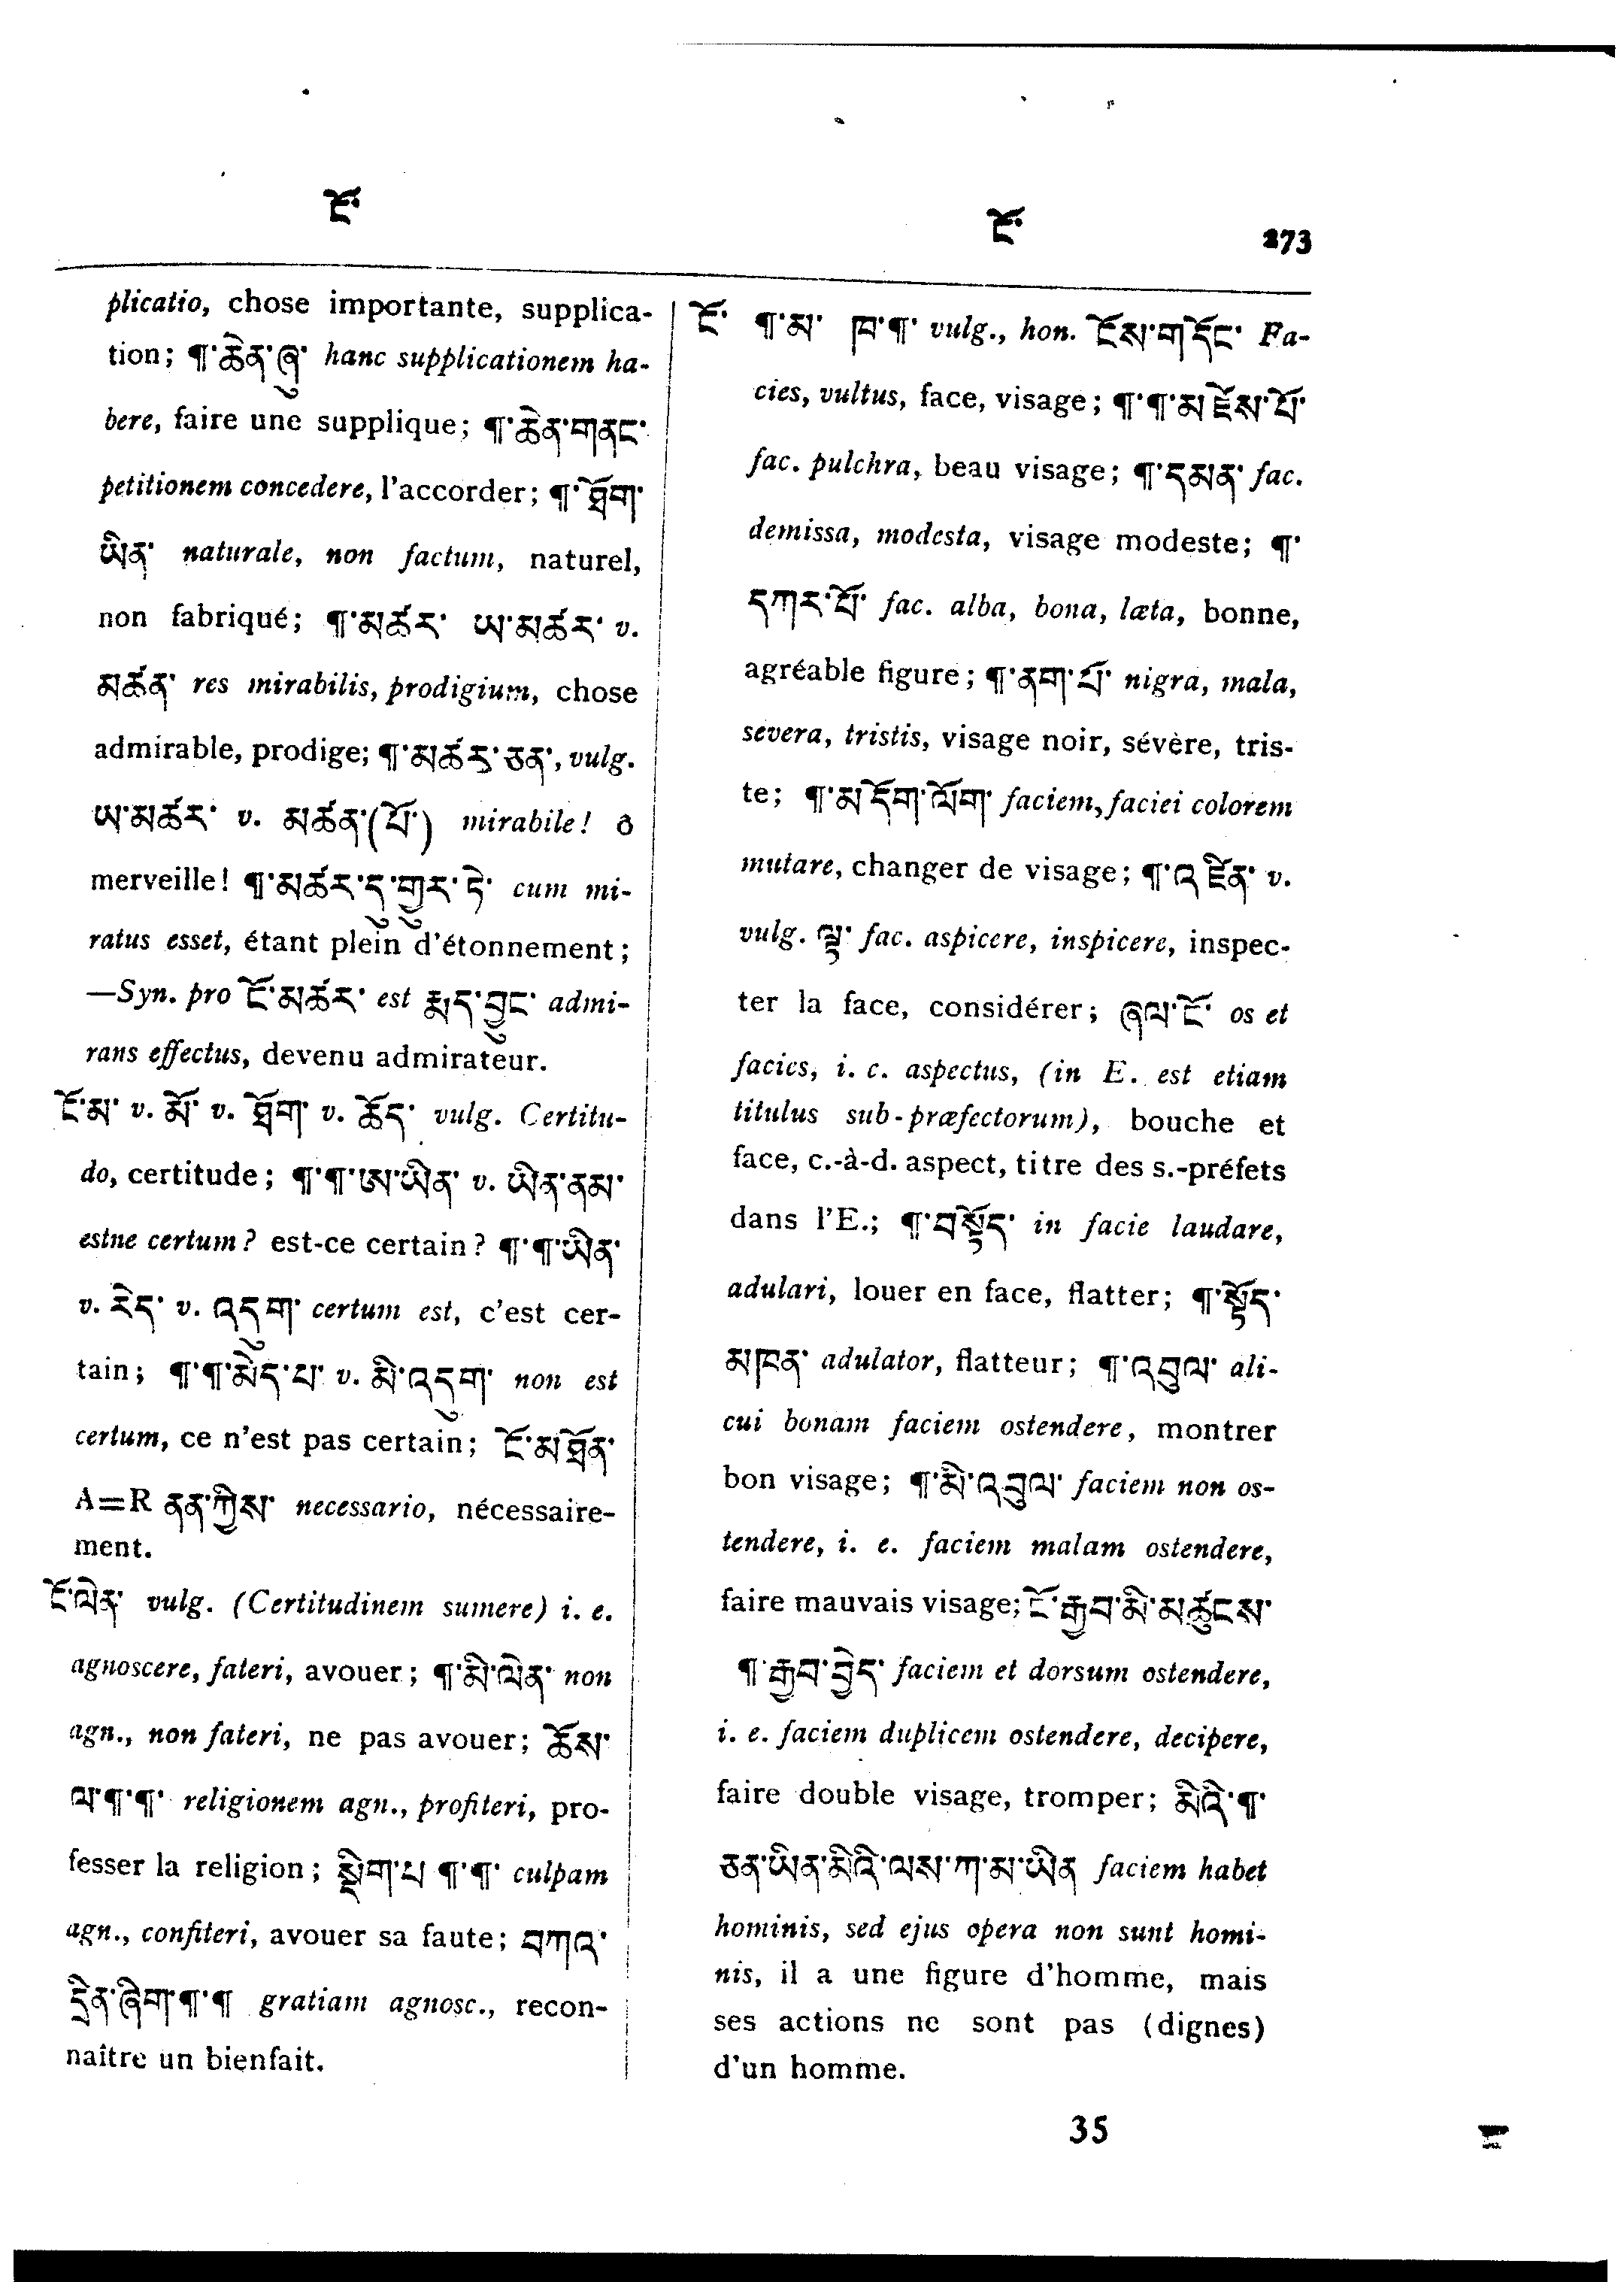 ངོ་
ངོ་ 273
plicatio, chose importante, supplica-
tion; ¶་ཆེན་ཞུ་ hanc supplicationem ha-
bere, faire une supplique; ¶་ཆེན་གནང་
petitionem concedere, l'accorder; ¶་ཐོག་
ཡིན་ naturale, non factum, naturel,
non fabriqué; ¶་མཚར་ ཡ་མཚར་ v.
མཚན་ res mirabilis, prodigium, chose
admirable, prodige; ¶་མཚར་ཅན་, vulg.
ཡ་མཚར་ v. མཚན་(པོ་) mirabile! ô
merveille! ¶་མཚར་དུ་གྱུར་ཏེ་ cum mi-
ratus esset, étant plein d'étonnement;
—Syn. pro ངོ་མཚར་ est རྨད་བྱུང་ admi-
rans effectus, devenu admirateur.
ངོ་མ་ v. མོ་ v. ཐོག་ v. ཚོད་ vulg. Certitu-
do, certitude; ¶་¶་ཨ་ཡིན་ v. ཡིན་ནམ་
estne certum? est-ce certain? ¶་¶་ཡིན་
v. རེད་ v. འདུག་ certum est, c'est cer-
tain; ¶་¶་མེད་པ་ v. མི་འདུག་ non est
certum, ce n'est pas certain; ངོ་མ་ཐོན་
A=R ནན་ཀྱིས་ necessario, nécessaire-
ment.
ངོ་ལེན་ vulg. (Certitudinem sumere) i. e.
agnoscere, fateri, avouer; ¶་མི་ལེན་ non
agn., non fateri, ne pas avouer; ཆོས་
ལ་¶་¶་ religionem agn., profiteri, pro-
fesser la religion; སྡིག་པ ¶་¶་ culpam
agn., confiteri, avouer sa faute; བཀའ་
དྲིན་ཞིག་¶་¶ gratiam agnosc., recon-
naître un bienfait.
ངོ་ ¶་མ་ ཁ་¶་ vulg., hon. ངོས་གདོང་ Fa-
cies, vultus, face, visage; ¶་¶་མ་ཛེས་པོ་
fac. pulchra, beau visage; ¶་དམན་ fac.
demissa, modesta, visage modeste; ¶་
དཀར་པོ་ fac. alba, bona, læta, bonne,
agréable figure; ¶་ནག་པོ་ nigra, mala,
severa, tristis, visage noir, sévère, tris-
te; ¶་མདོག་ལོག་ faciem, faciei colorem
mutare, changer de visage; ¶་འཛིན་ v.
vulg. ལྟ་ fac. aspicere, inspicere, inspec-
ter la face, considérer; ཞལ་ངོ་ os et
facies, i. e. aspectus, (in E. est etiam
titulus sub-præfectorum), bouche et
face, c.-à-d. aspect, titre des s.-préfets
dans l'E.; ¶་བསྟོད་ in facie laudare,
adulari, louer en face, flatter; ¶་སྟོད་
མཁན་ adulator, flatteur; ¶་འབུལ་ ali-
cui bonam faciem ostendere, montrer
bon visage; ¶་མི་འབུལ་ faciem non os-
tendere, i. e. faciem malam ostendere,
faire mauvais visage; ངོ་རྒྱབ་མི་མཚུངས་
¶་རྒྱབ་བྱེད་ faciem et dorsum ostendere,
i. e. faciem duplicem ostendere, decipere,
faire double visage, tromper; མིའི་¶་
ཅན་ཡིན་མིའི་ལས་ཀ་མ་ཡིན faciem habet
hominis, sed ejus opera non sunt homi-
nis, il a une figure d'homme, mais
ses actions ne sont pas (dignes)
d'un homme.
35